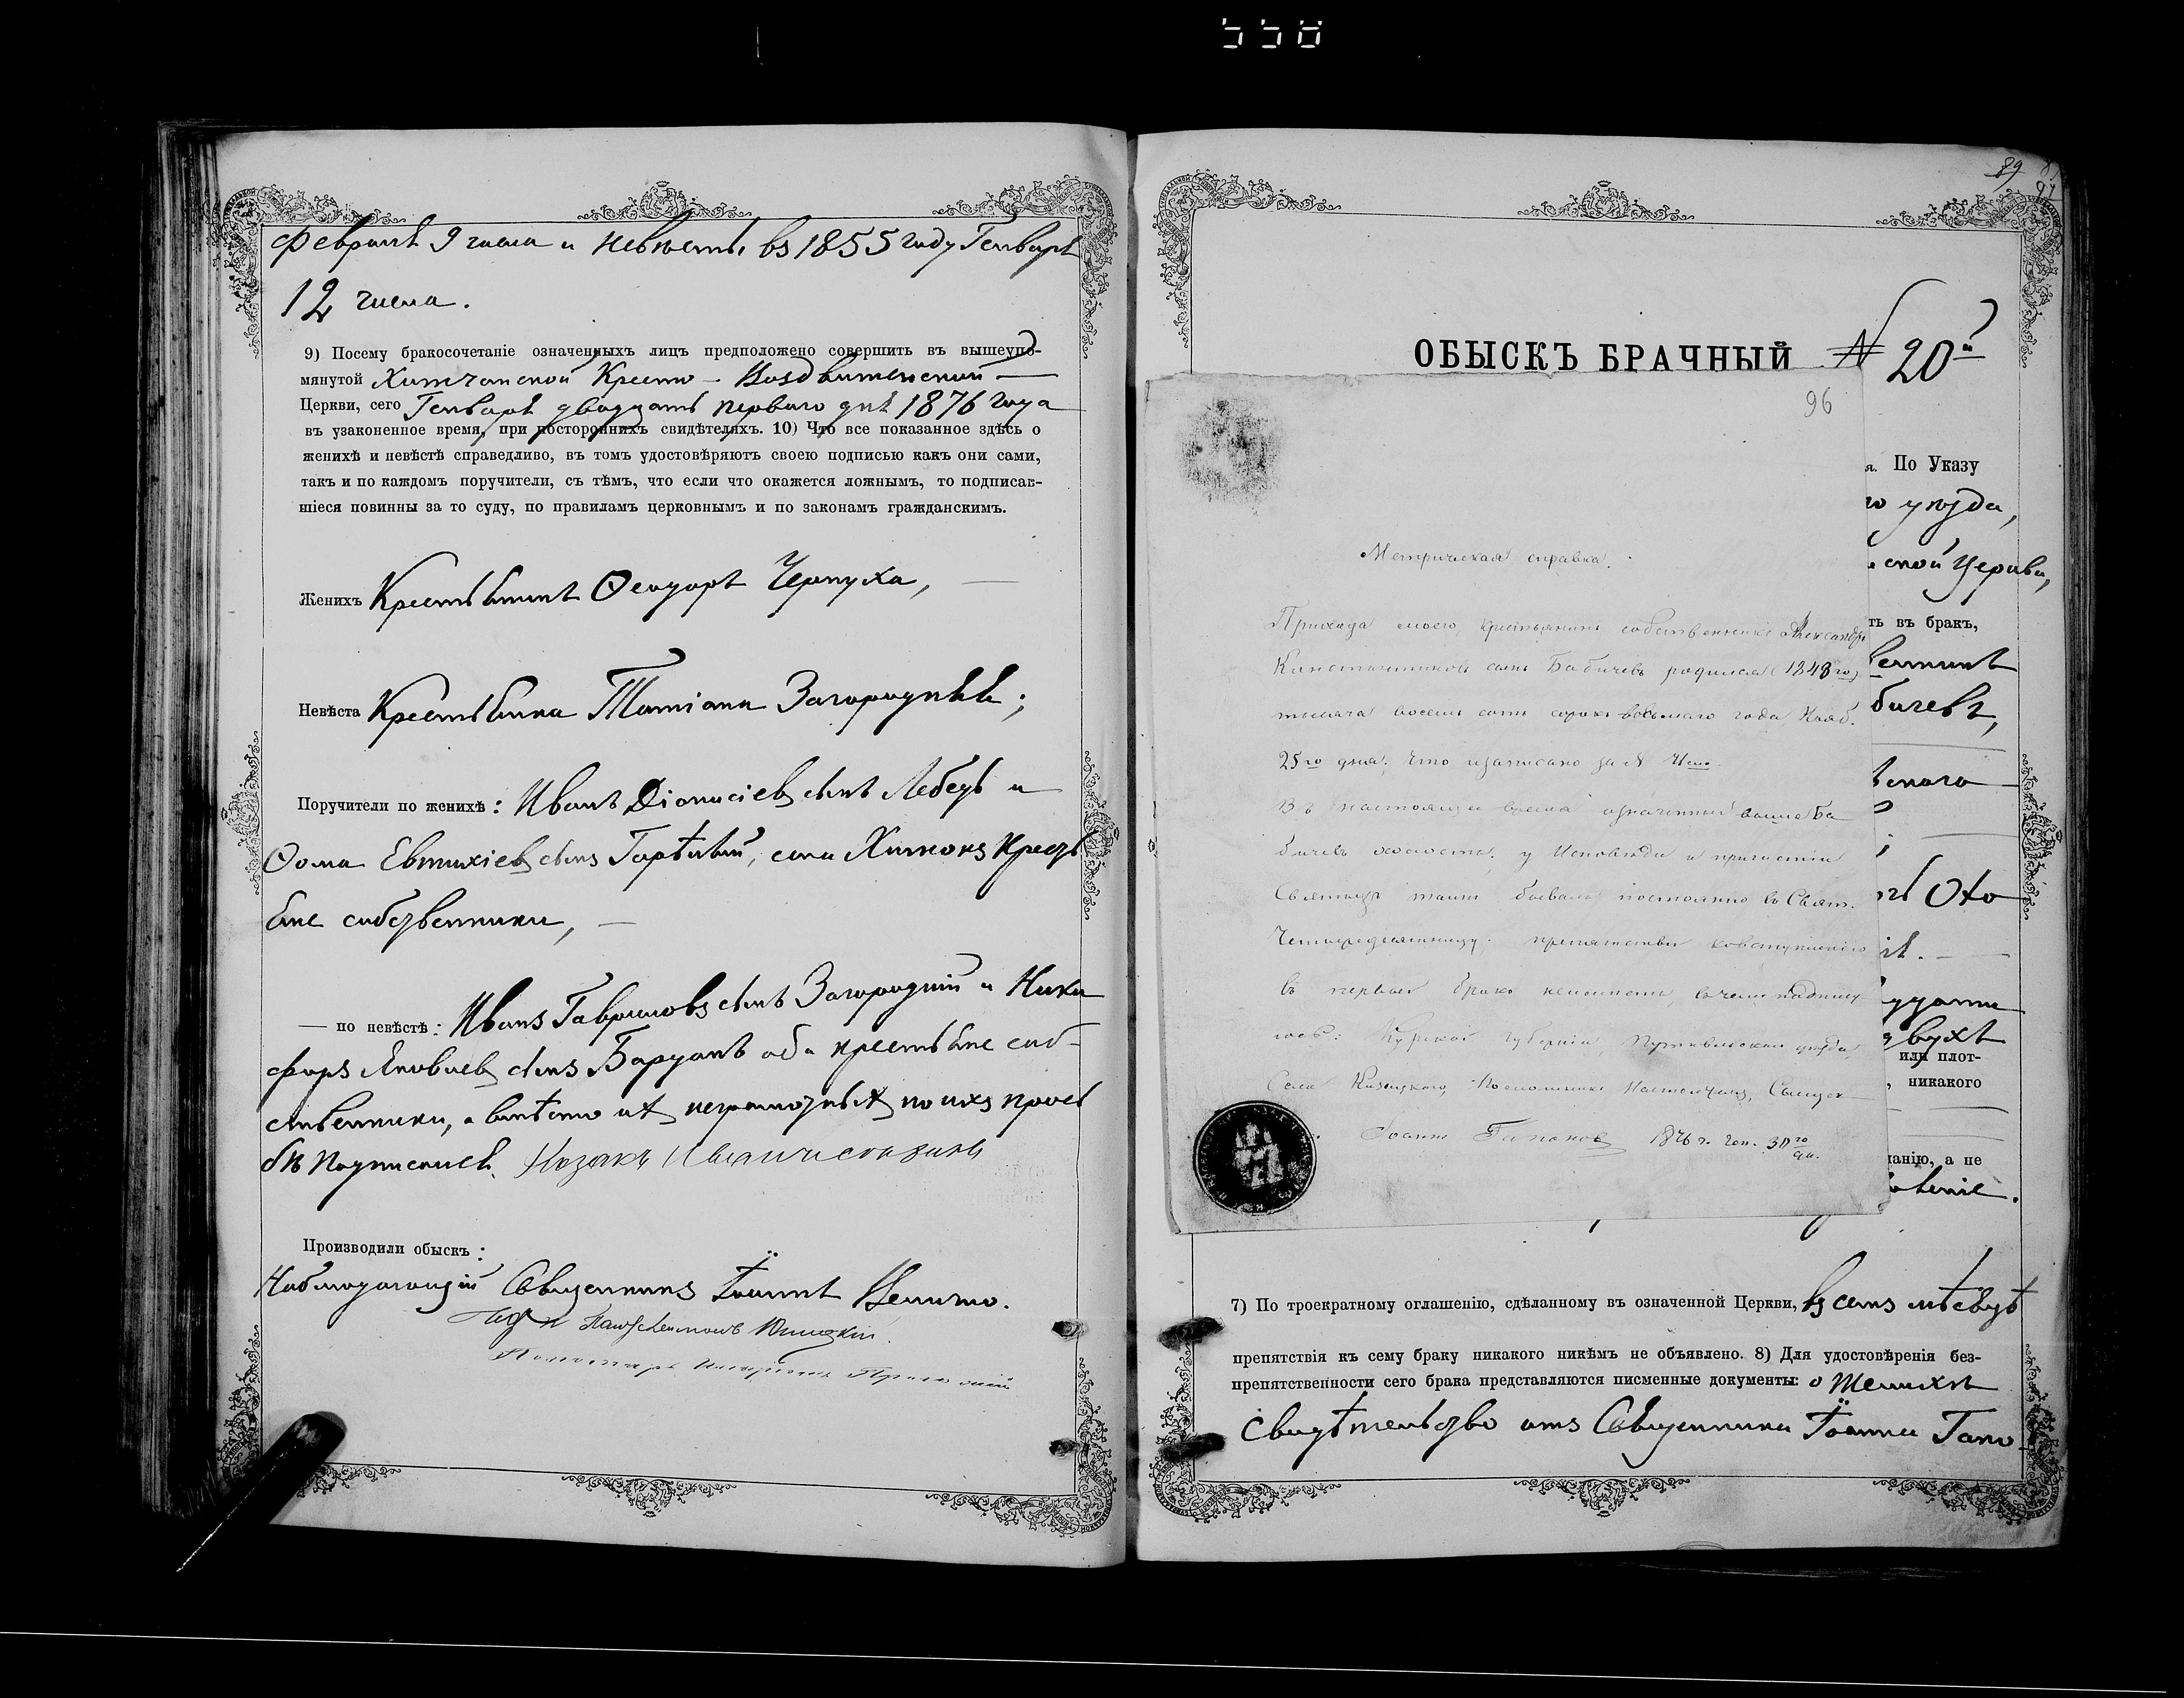 558
Февраля 9 числа и невеста въ 1855 году Генваря
12 числа.
9) Посему бракосочетаніе означенныхъ лицъ предположено совершить въ вышеупо-
мянутой Хижчанской Кресто-Воздвиженской
Церкви, сего Генваря двадцать перваго дня 1876 года
въ узаконенное время, при постороннихъ свидѣтеляхъ. 10) Что все показанное здѣсь о
женихѣ и невѣстѣ справедливо, въ томъ удостовѣряютъ своею подписью какъ они сами,
такъ и по каждомъ поручители, съ тѣмъ, что если что окажется ложнымъ, то подписав-
шіеся повинны за то суду, по правиламъ церковнымъ и по законамъ гражданскимъ.
Женихъ Крестьянинъ Ѳеодоръ Черпуха,
Невѣста Крестьянка Татіана Загородняя;
Поручители по женихѣ: Иванъ Діонисіевъ сынъ Лебедь и
Ѳома Евтихіевъ сынъ, села Хижокъ Кресть
яне собственники,
— по невѣстѣ: Иванъ Гавриловъ сынъ Загородній и Ники
форъ Яковлевъ сынъ оба крестьяне соб-
ственники, а вмѣсто ихъ неграмотныхъ по ихъ прозь
бѣ подписался Козакъ
Производили обыскъ:
Наблюдающій Священникъ Іоаннъ
Пономарь
89
96
ОБЫСКЪ БРАЧНЫЙ № 20й
я. По Указу
го уѣзда,
ской Церкви,
ть въ бракъ,
бичевъ,
скаго
двухъ
или плот-
, никакого
ланію, а не
Метрическая справка.
Прихода моего, крестьянинъ собственникъ Александръ
Константиновъ сынъ Бабичевъ родился (1848го)
тысяча восемь сотъ сорокъ восьмаго года Нояб.
25го дня; что и записано за №
Въ настоящее время означенный выше Ба
бичевъ холостъ, у Исповѣди и причастія
Святыхъ таинъ бывалъ постоянно въ Свят.
Четыредесятницу; препятствія ко вступленію
въ первый бракъ неимѣетъ, въ чемъ подпису
юсь: Курской Губерніи, Путивльскаго уѣзда,
Села Казацкого, Священ
Іоаннъ Гапоновъ 1876 г. Ген. 30го дн.
7) По троекратному оглашенію, сдѣланному въ означенной Церкви, въ семъ мѣсяцѣ
препятствія къ сему браку никакого никѣмъ не объявлено. 8) Для удостовѣренія без-
препятственности сего брака представляются писменные документы: о Женихѣ
Свидѣтельство отъ Священника Іоанна Гапо